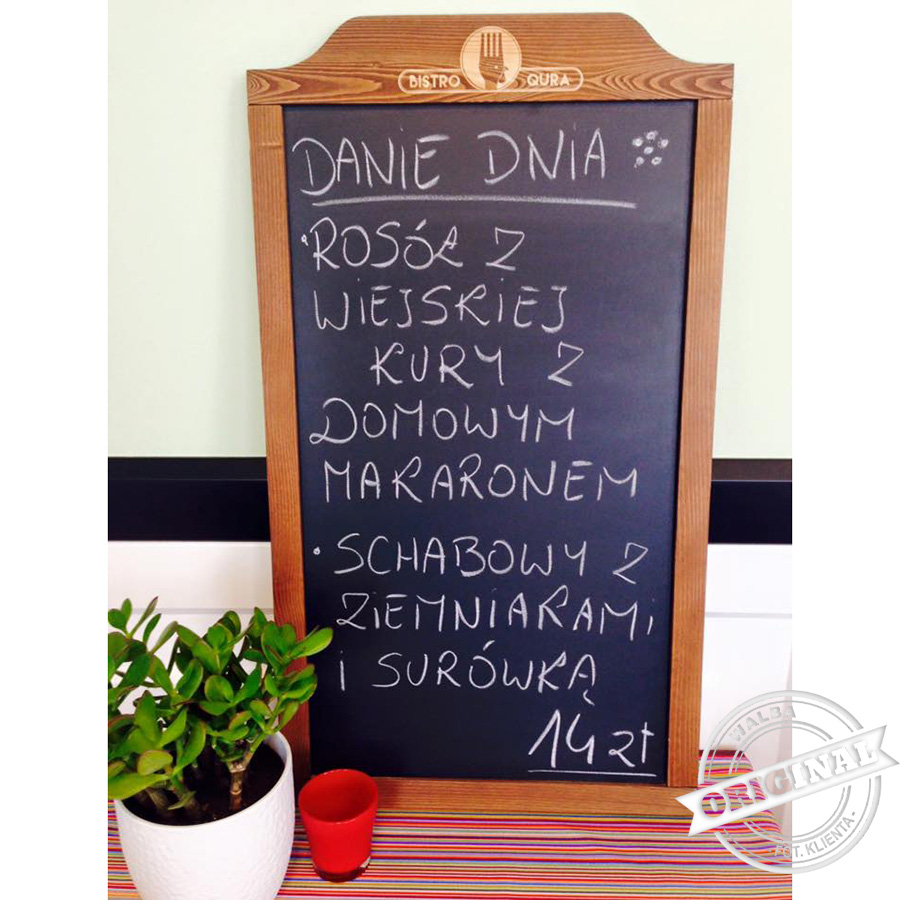 BISTRO QURA
DANIE DNIA
• ROSÓŁ Z
WIEJSKIEJ
KURY Z
DOMOWYM
MAKARONEM
• SCHABOWY Z
ZIEMNIAKAMI
I SURÓWKĄ
14 zł
WALBA
ORIGINAL
FOT. KLIENTA